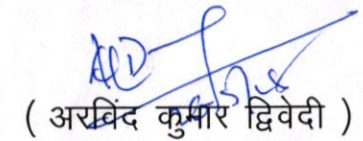 ( अरविंद कुमार द्विवेदी )